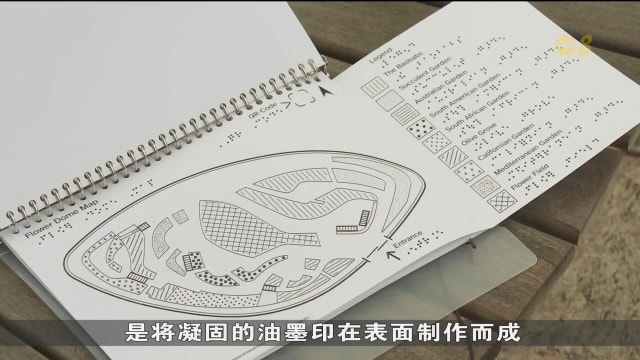 8
Legend
The Baobabs
Succulent Garden
Australian Garden
South American Garden
South African Garden
Olive Grove
Californian Garden
Mediterranean Garden
Flower Field
QR Code
Flower Dome Map
Entrance
是将凝固的油墨印在表面制作而成